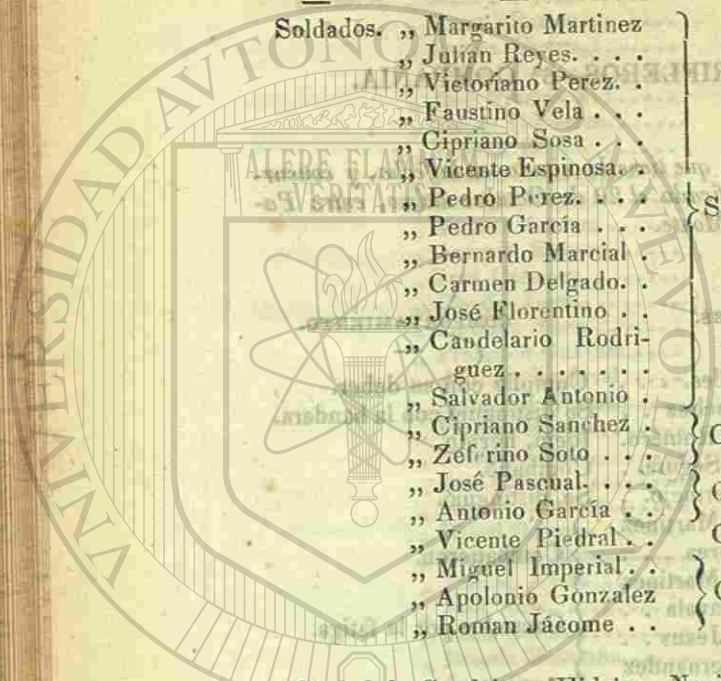 Soldados. ,, Margarito Martinez
,, Julian Reyes. . . .
,, Victoriano Perez. .
,, Faustino Vela . . .
,, Cipriano Sosa . . .
,, Vicente Espinosa. .
,, Pedro Perez. . . . S
,, Pedro García . . .
,, Bernardo Marcial .
,, Carmen Delgado. .
,, José Florentino . .
,, Candelario Rodri-
guez . . . . . . .
,, Salvador Antonio .
,, Cipriano Sanchez . C
,, Zeferino Soto . . .
,, José Pascual. . . .
,, Antonio García . .
,, Vicente Piedral . .
,, Miguel Imperial. .
,, Apolonio Gonzalez C
,, Roman Jácome . .
UNIVERSIDAD AVTONO
ALERE FLAMMAM
VERITATIS